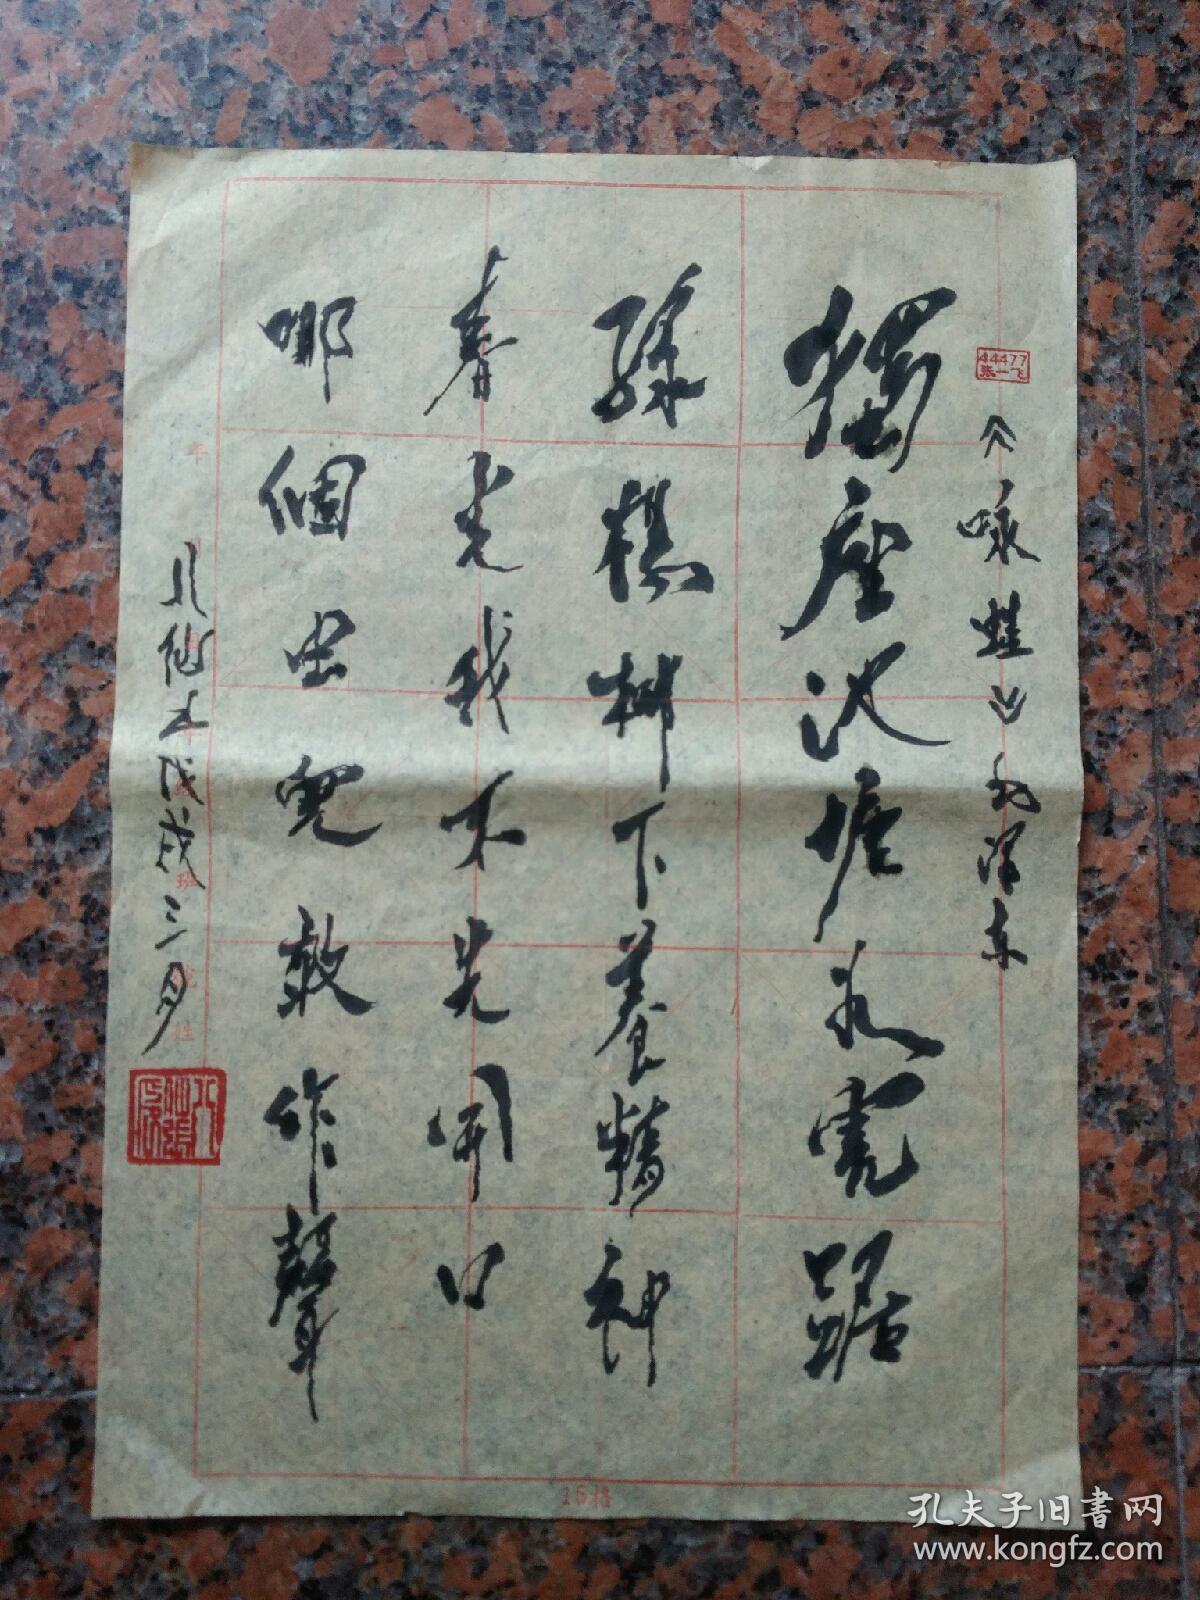 44477
张一飞
《咏蛙》毛泽东
獨座池塘如虎踞
綠楊樹下養精神
春来我不先開口
哪個虫兒敢作聲
戊戌三月
年
班
姓
15格
孔夫子旧書网
www.kongfz.com